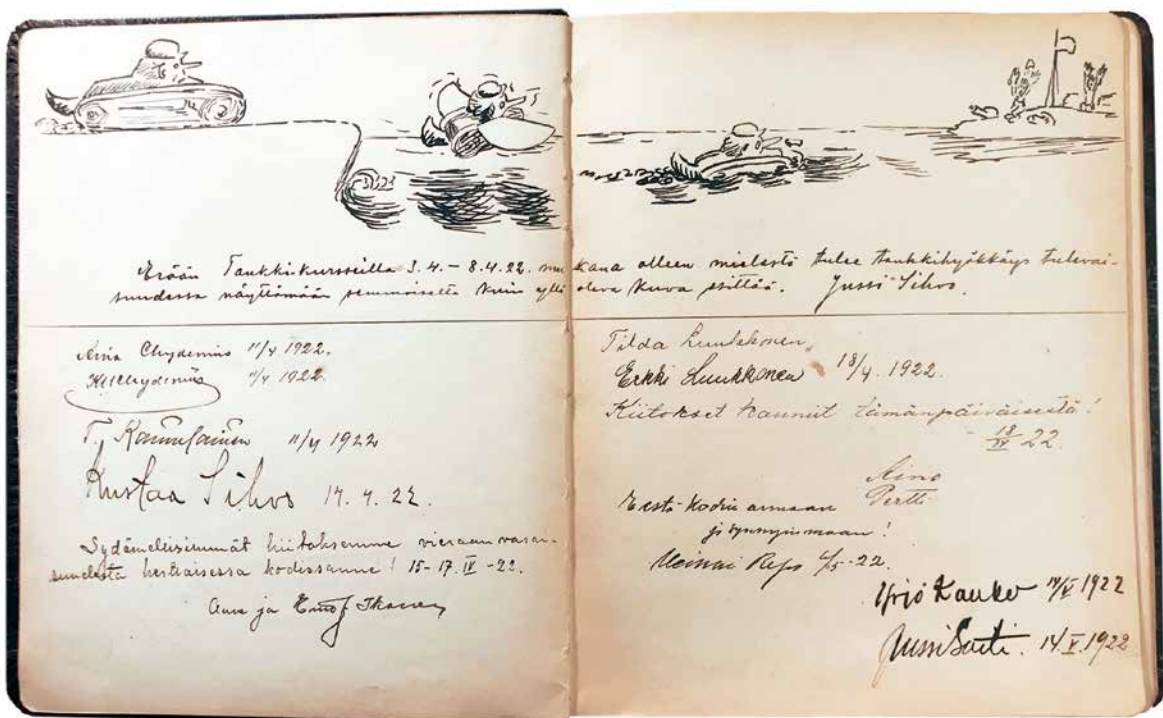 Erään Tankkikursseilla 3.4. – 8.4.22. mukana olleen mielestä tulee tankkihyökkäys tulevai-
suudessa näyttämään semmoiselta kuin yllä oleva kuva esittää. Jussi Sihvo.
Aina Chydenius 11/4 1922.
Chydenius 11/4 1922.
T. 11/4 1922
Kustaa Sihvo 17. 4. 22.
Sydämellisimmät kiitoksemme vieraanvarai-
suudesta herttaisessa kodissanne! 15-17. IV -22.
ja
Tilda Luukkonen,
Erkki Luukkonen 18/4. 1922.
Kiitokset kauniit tämänpäiväisestä!
18/IV 22.
Aino
Pertti
kodin armaan
ja synnyinmaan!
Repo 4/5-22.
Yrjö Kauko 14/V 1922
Jussi 14.V.1922